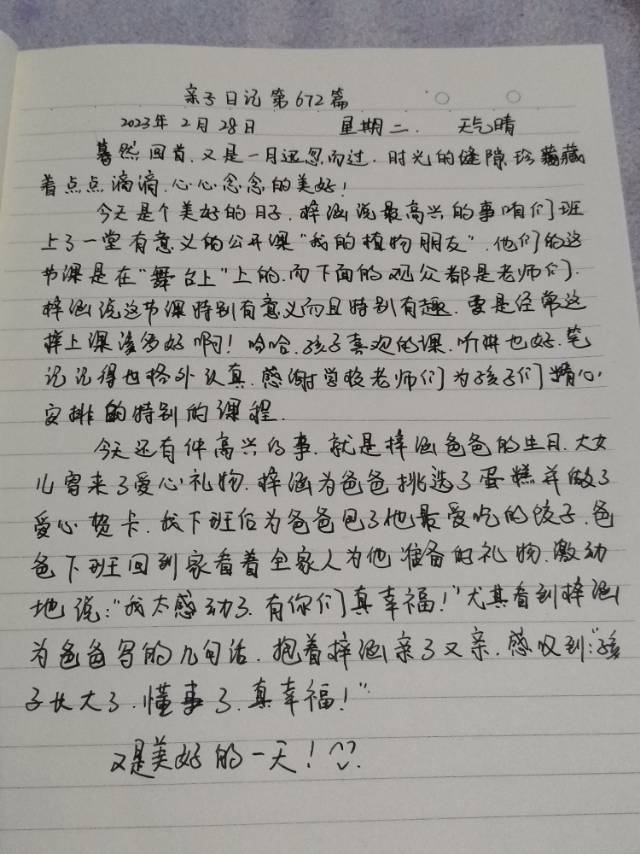 亲子日记第672篇
2023年2月28日 星期二. 天气晴
蓦然回首,又是一月运忽而过.时光的缝隙珍藏藏
着点点滴滴,心心念念的美好!
今天是个美好的日子.梓涵说最高兴的事咱们班
上了一堂有意义的公开课"我的植物朋友".他们的这
节课是在"舞台上"上的.而下面的观众都是老师们.
梓涵说这节课特别有意义而且特别有趣.要是经常这
样上课该多好啊!哈哈.孩子喜欢的课.听讲也好.笔
记记得也格外认真.感谢学校老师们为孩子们精心
安排的特别的课程.
今天还有件高兴的事.就是梓涵爸爸的生日.大女
儿寄来了爱心礼物.梓涵为爸爸挑选了蛋糕并做了
爱心贺卡.我下班后为爸爸包了他最爱吃的饺子.爸
爸下班回到家看着全家人为他准备的礼物.激动
地说:"我太感动了.有你们真幸福!"尤其看到梓涵
为爸爸写的几句话.抱着梓涵亲了又亲.感叹到:"孩
子长大了.懂事了.真幸福!"
又是美好的一天!